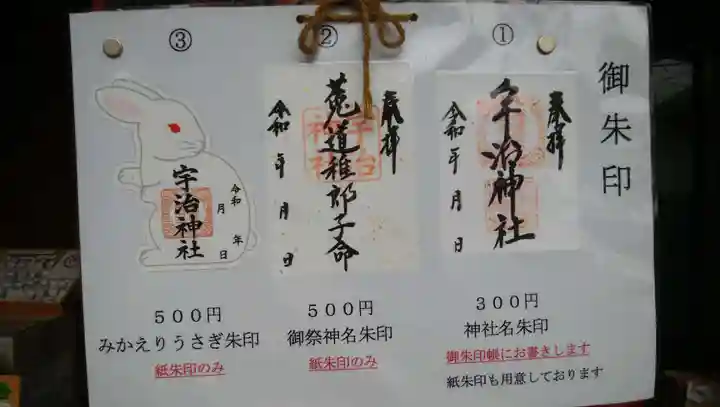 御朱印
①
奉拝
宇治神社
令和 年 月 日
３００円
神社名朱印
御朱印帳にお書きします
紙朱印も用意しております
②
奉拝
菟道稚郎子命
令和 年 月 日
５００円
御祭神名朱印
紙朱印のみ
③
宇治神社
令和 年
月 日
５００円
みかえりうさぎ朱印
紙朱印のみ